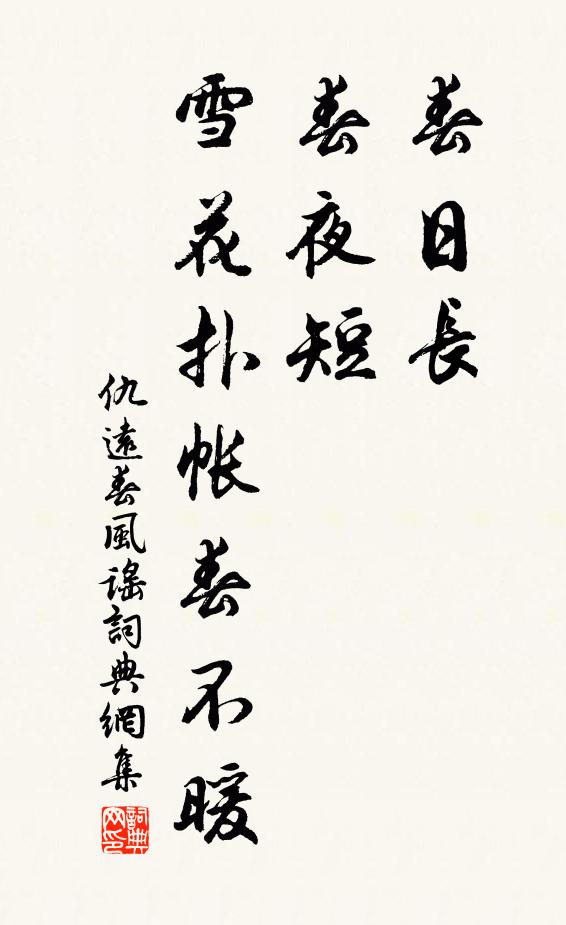 春日長
春夜短
雪花扑帐春不暖
仇遠春風謠詞典網集
詞典网印